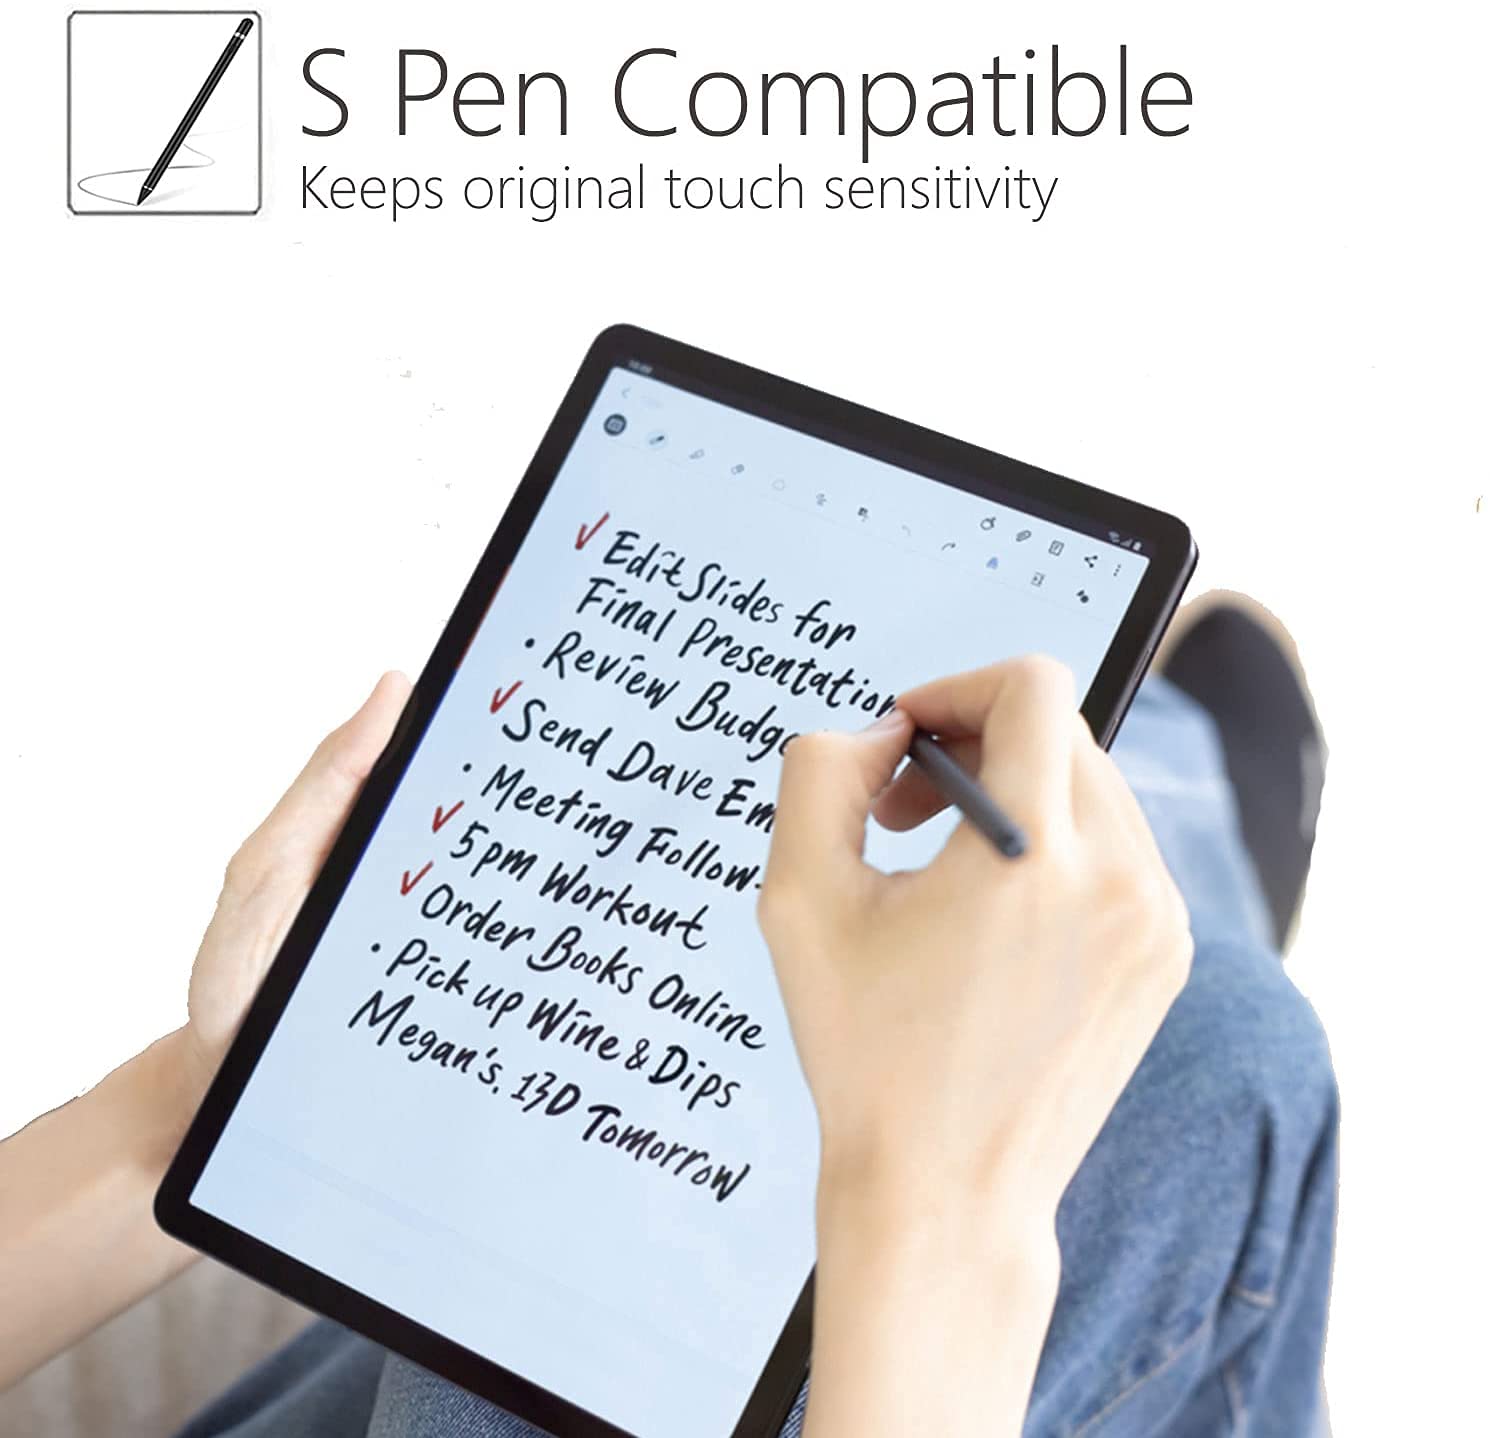 S Pen Compatible
Keeps original touch sensitivity
Edit Slides for
Final Presentation
• Review
Send Dave
• Meeting Follow-
5pm Workout
Order Books Online
• Pick up Wine & Dips
Megan's. 13D Tomorrow